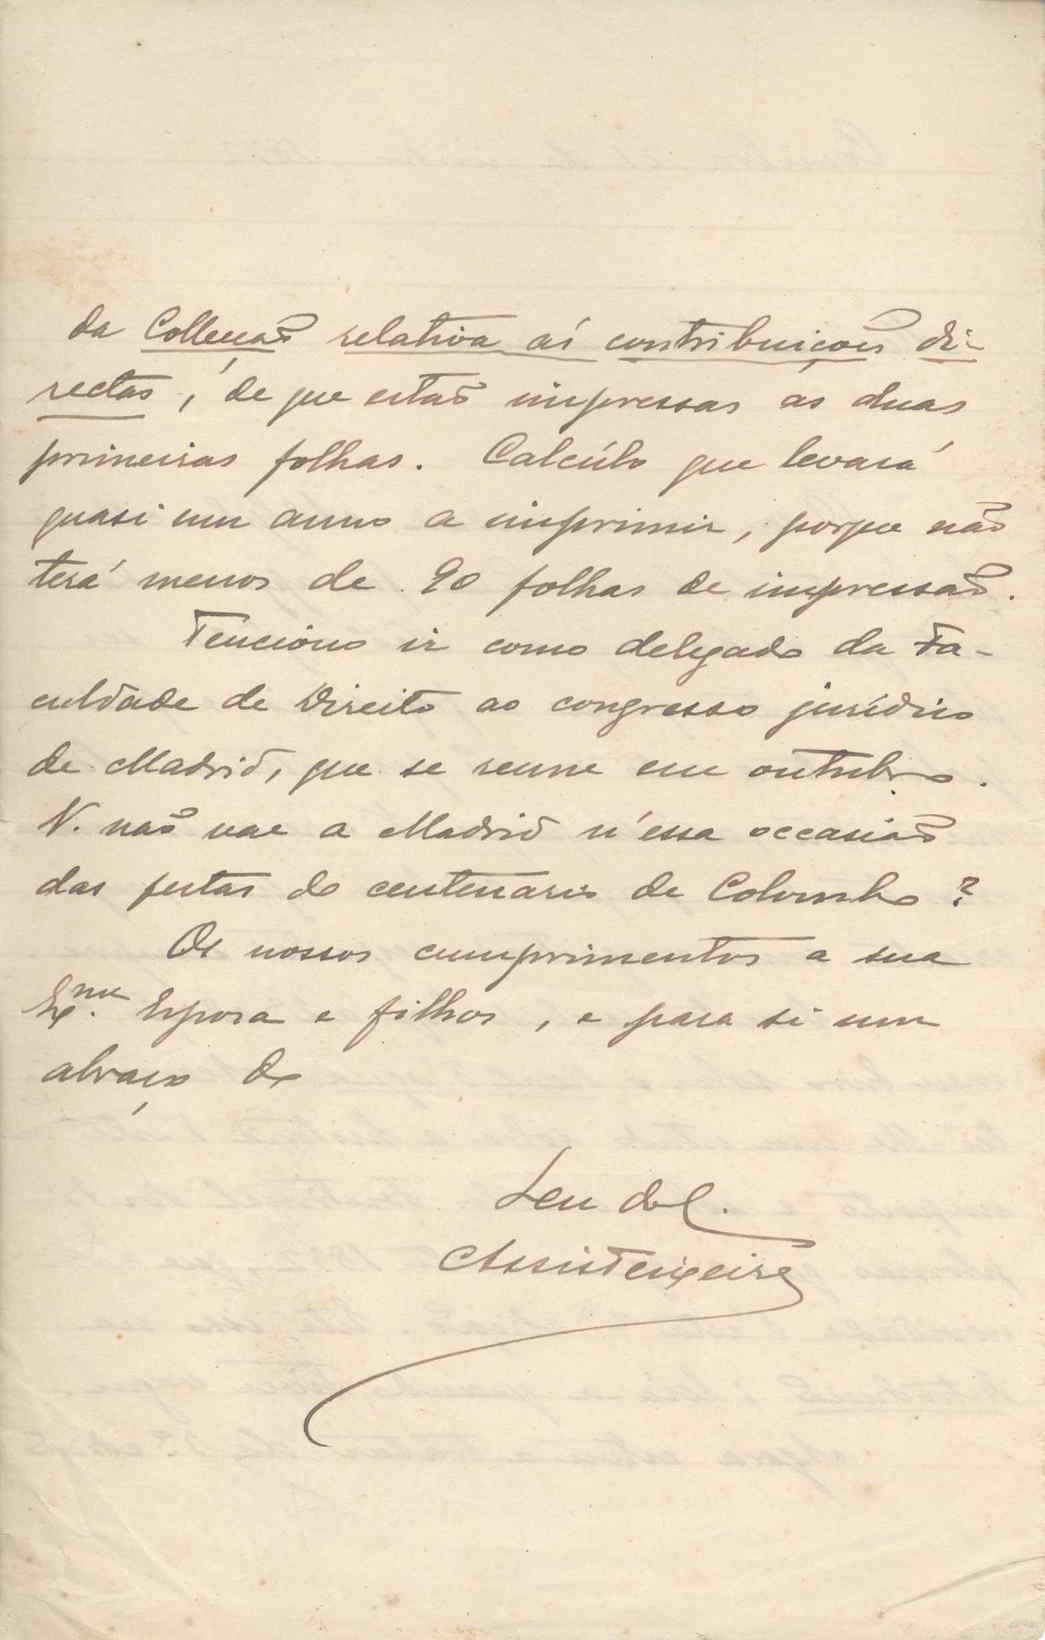 da Collecção relativa ás contribuições di-
rectas, de que estão impressas as duas
primeiras folhas. Calcúlo que levará
quasi um anno a imprimir, porque não
terá menos de 90 folhas de impressão.
Tenciono ir como delegado da Fa-
culdade de Direito ao congresso jurídico
de Madrid, que se reune em outubro.
V. não vae a Madrid n'essa occasião
das festas do centenario de Colombo?
Os nossos cumprimentos a sua
Ex.ma Esposa e filhos, e para si um
abraço do
Seu
Assis Teixeira